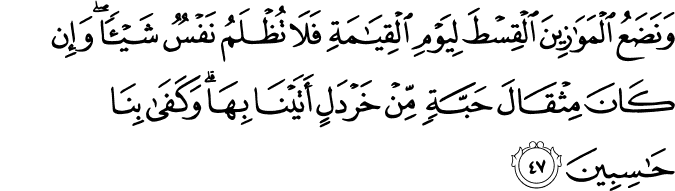 وَنَضَعُ ٱلْمَوَٰزِينَ ٱلْقِسْطَ لِيَوْمِ ٱلْقِيَـٰمَةِ فَلَا تُظْلَمُ نَفْسٌ شَيْـًٔا ۖ وَإِن
كَانَ مِثْقَالَ حَبَّةٍ مِّنْ خَرْدَلٍ أَتَيْنَا بِهَا ۗ وَكَفَىٰ بِنَا
حَـٰسِبِينَ ٤٧